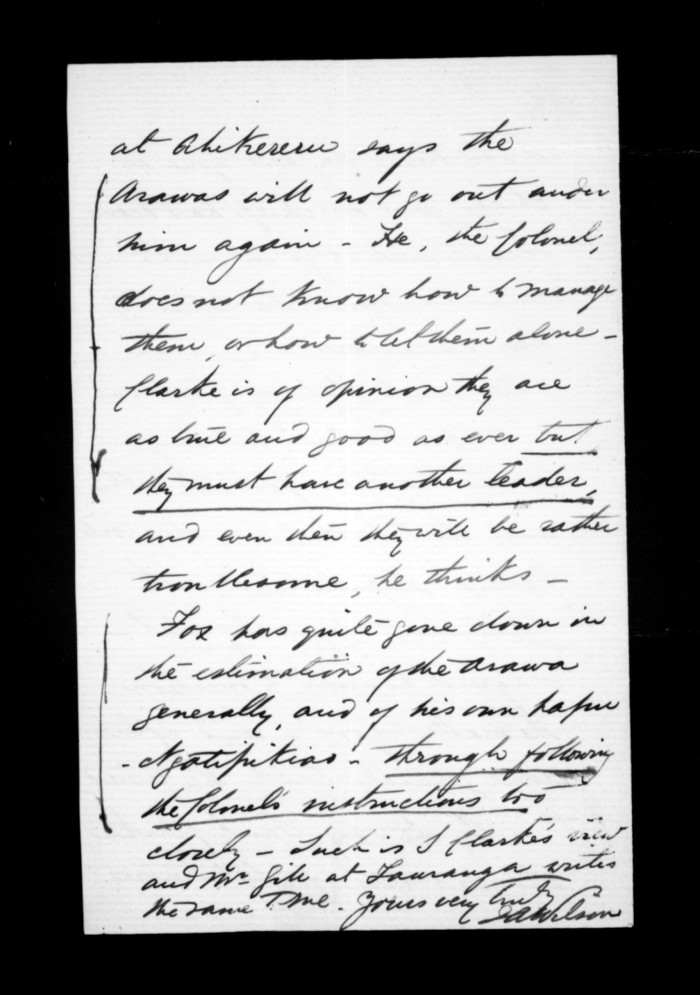 at Ahikereru says the
Arawas will not go out under
him again - He, the Colonel,
does not know how to manage
them, or how to let them alone -
Clarke is of opinion they are
as true and good as ever but
they must have another leader,
and even then they will be rather
troublesome, he thinks -
Fox has quite gone down in
the estimation of the Arawa
generally, and of his own hapu
- Ngatipikiao - through following
the Colonel's instructions too
closely - Such is Clarke's view
and Mr. Gill at Tauranga writes
the same to me. Yours very truly
JAWilson